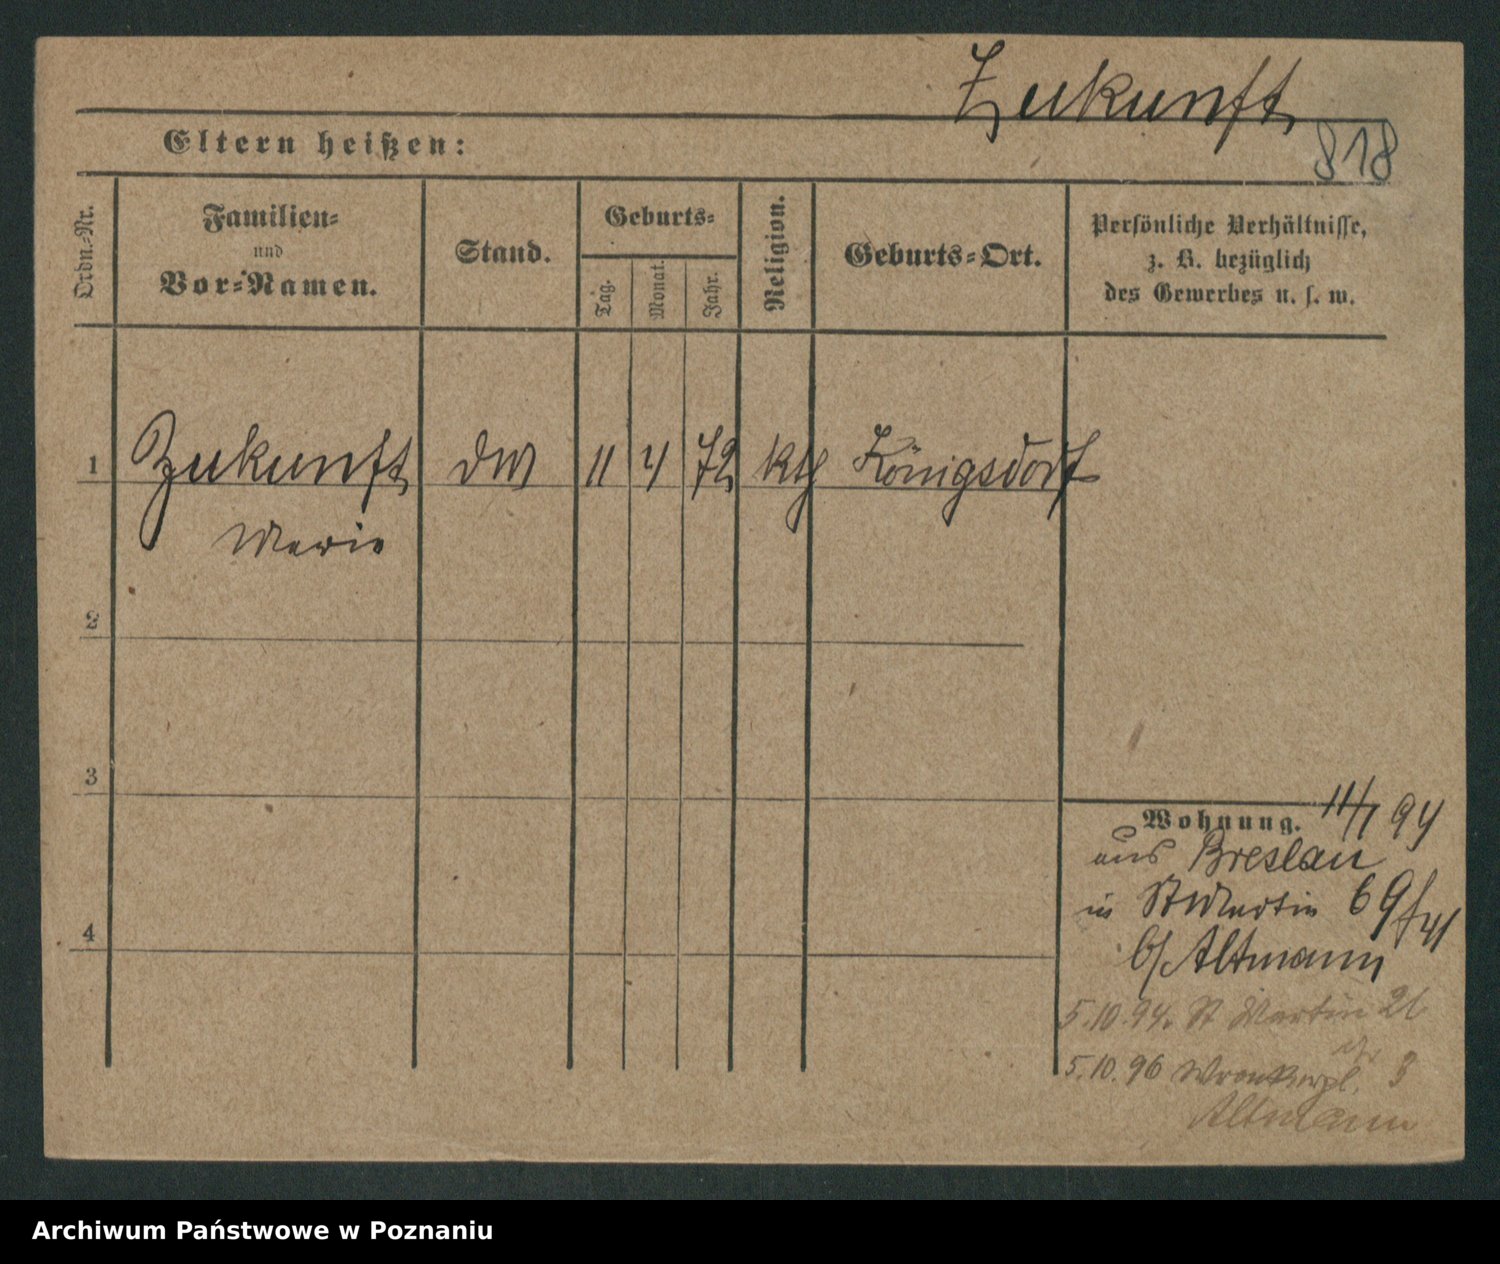 Zukunft
818
Eltern heißen:
Ordn.-Nr.
Familien-
und
Vor-Namen.
Stand.
Geburts-
Tag.
Monat.
Jahr.
Religion.
Geburts-Ort.
Persönliche Verhältnisse,
z. B. bezüglich
des Gewerbes u. s. w.
1 Zukunft 11 4 72 kth Königsdorf
Marie
2
3
4
Wohnung. 11/1 94
aus Breslau
in St Martin 69/41
b/ Altmann
5.10.94. St Martin 21
5.10.96 Wronkerpl. 3
Altmann
Archiwum Państwowe w Poznaniu